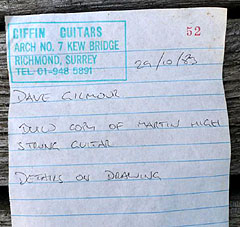 GIFFIN GUITARS
ARCH NO. 7 KEW BRIDGE
RICHMOND, SURREY
TEL 01-948 5891
52
29/10/83
DAVE GILMOUR
BUILD COPY OF MARTIN HIGH
STRING GUITAR
DETAILS ON DRAWING